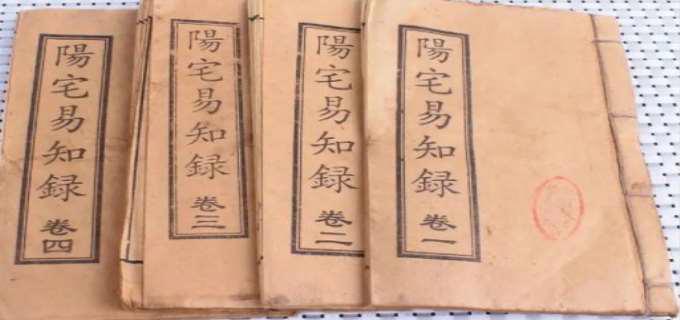 陽宅易知録 卷一
陽宅易知録 卷二
陽宅易知録 卷三
陽宅易知録 卷四